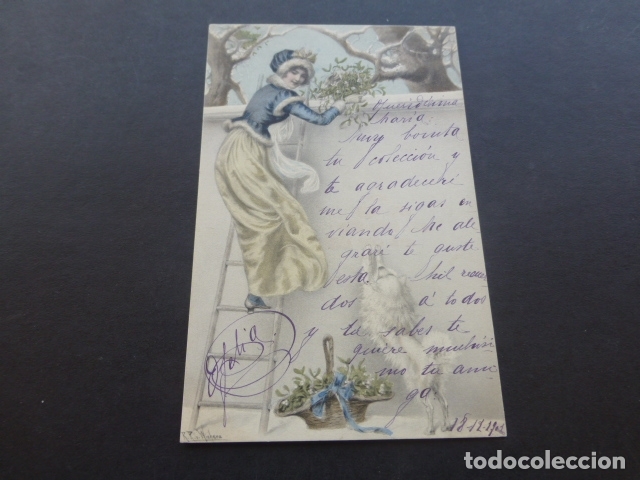 Queridísima
María:
Muy bonita
tu colección y
te agradeceré
me la sigas en
viando. Me ale
graré te guste
esta. Mil recuer
dos á todos
y ya sabes te
quiere muchísi
mo tu ami
ga
Ofelia
18-12-190
todocoleccion.net